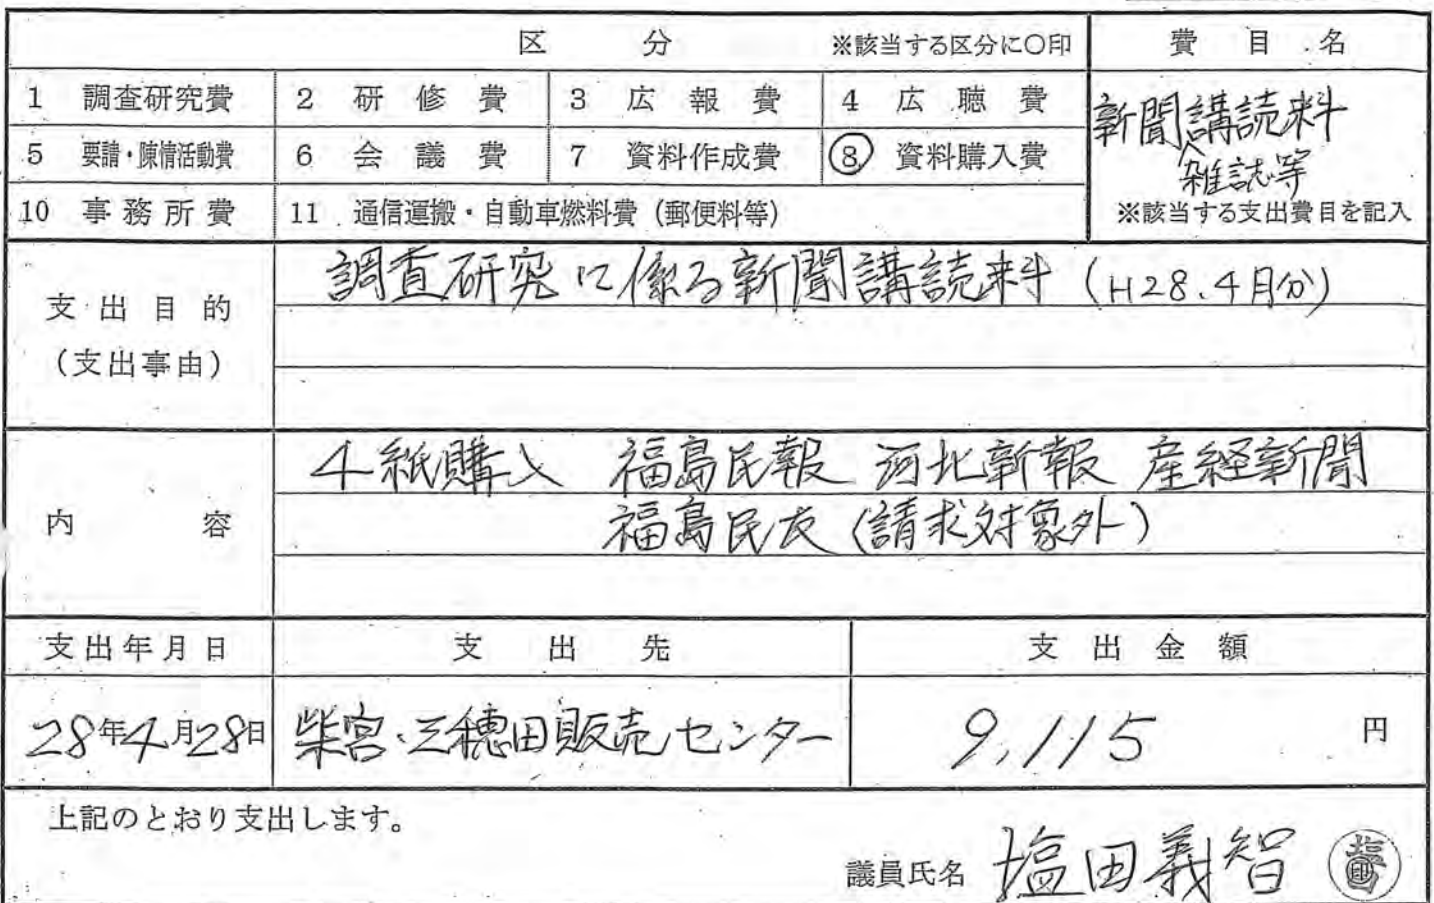 区 分 ※該当する区分に○印 費目名
1 調査研究費 2 研修費 3 広報費 4 広聴費
5 要請・陳情活動費 6 会議費 7 資料作成費 ⑧ 資料購入費
10 事務所費 11 通信運搬・自動車燃料費（郵便料等）
新聞講読料
雑誌等
※該当する支出費目を記入
支出目的
（支出事由）
調査研究に係る新聞講読料（H28.4月分）
内 容
4紙購入 福島民報 河北新報 産経新聞
福島民友（請求対象外）
支出年月日 支出先 支出金額
28年4月28日 柴宮・三穂田販売センター 9,115 円
上記のとおり支出します。
議員氏名 塩田義智